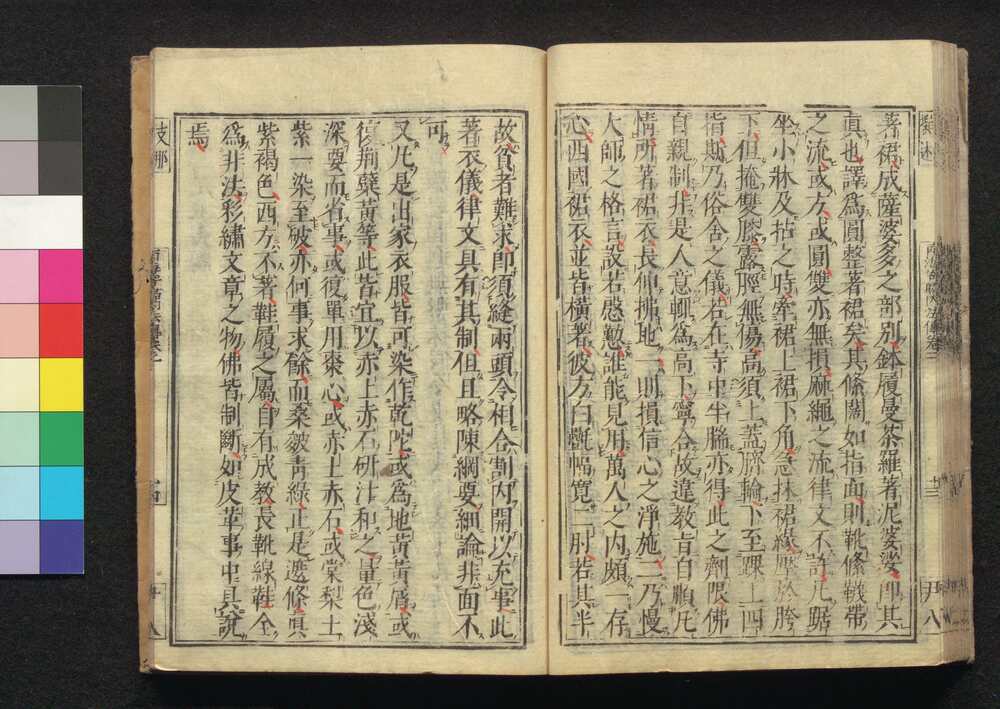 著裙成薩婆多之部別鉢履曼荼羅著泥婆娑即其
真也譯為圓整著裙矣其條闊如指面則靴絛韈帶
之流或方或圓雙亦無損麻繩之流律文不許凡踞
坐小牀及拈之時牽裙上裙下角急抹裙緣壓於胯
下但掩雙膝露脛無傷高須上蓋臍輪下至踝上四
指斯乃俗舍之儀若在寺中半腨亦得此之齊限佛
自親制非是人意輒為高下寧合故違教旨自順凡
情所著裙衣長伸拂地一則損信心之淨施二乃慢
大師之格言設若慇懃誰能見用萬人之內頗一存
心西國裙衣並皆橫著彼方白㲲幅寬二肘若其半
故貧者難求即須縫兩頭令相合割內開以充事此
著衣儀律文具有其制但且略陳綱要細論非面不
可
又凡是出家衣服皆可染作乾陀或為地黃黃屑或
復荊蘗黃等此皆宜以赤土赤石研汁和之量色淺
深要而省事或復單用棗心或赤土赤石或棠梨土
紫一染至破亦何事求餘而桑皴青綠正是遮條真
紫褐色西方不著鞋履之屬自有成教長靴線鞋全
為非法彩繡文章之物佛皆制斷如皮革事中具說
焉